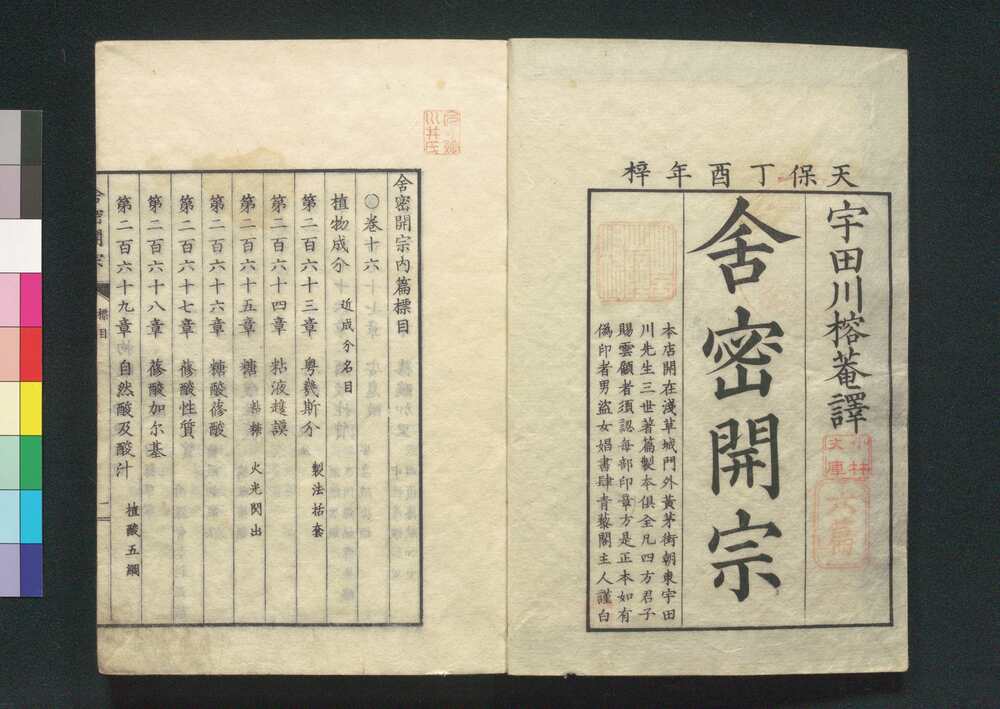 天保丁酉年梓
宇田川榕菴譯
舎密開宗
本店開在淺草城門外黃茅街朝東宇田
川先生三世著篇製本俱全凡四方君子
賜雲顧者須認每部印章方是正本如有
偽印者男盗女娼書肆青藜閣主人謹白
小林
文庫
舎密開宗內篇標目
巻十六
植物成分 近成分名目
第二百六十三章 粤幾斯分 製法括套
第二百六十四章 粘液護謨
第二百六十五章 糖 粘糖 火光閃出
第二百六十六章 糖酸蓚酸
第二百六十七章 蓚酸性質
第二百六十八章 蓚酸加尔基
第二百六十九章 自然酸及酸汁 植酸五綱
舎密開宗 標目 一